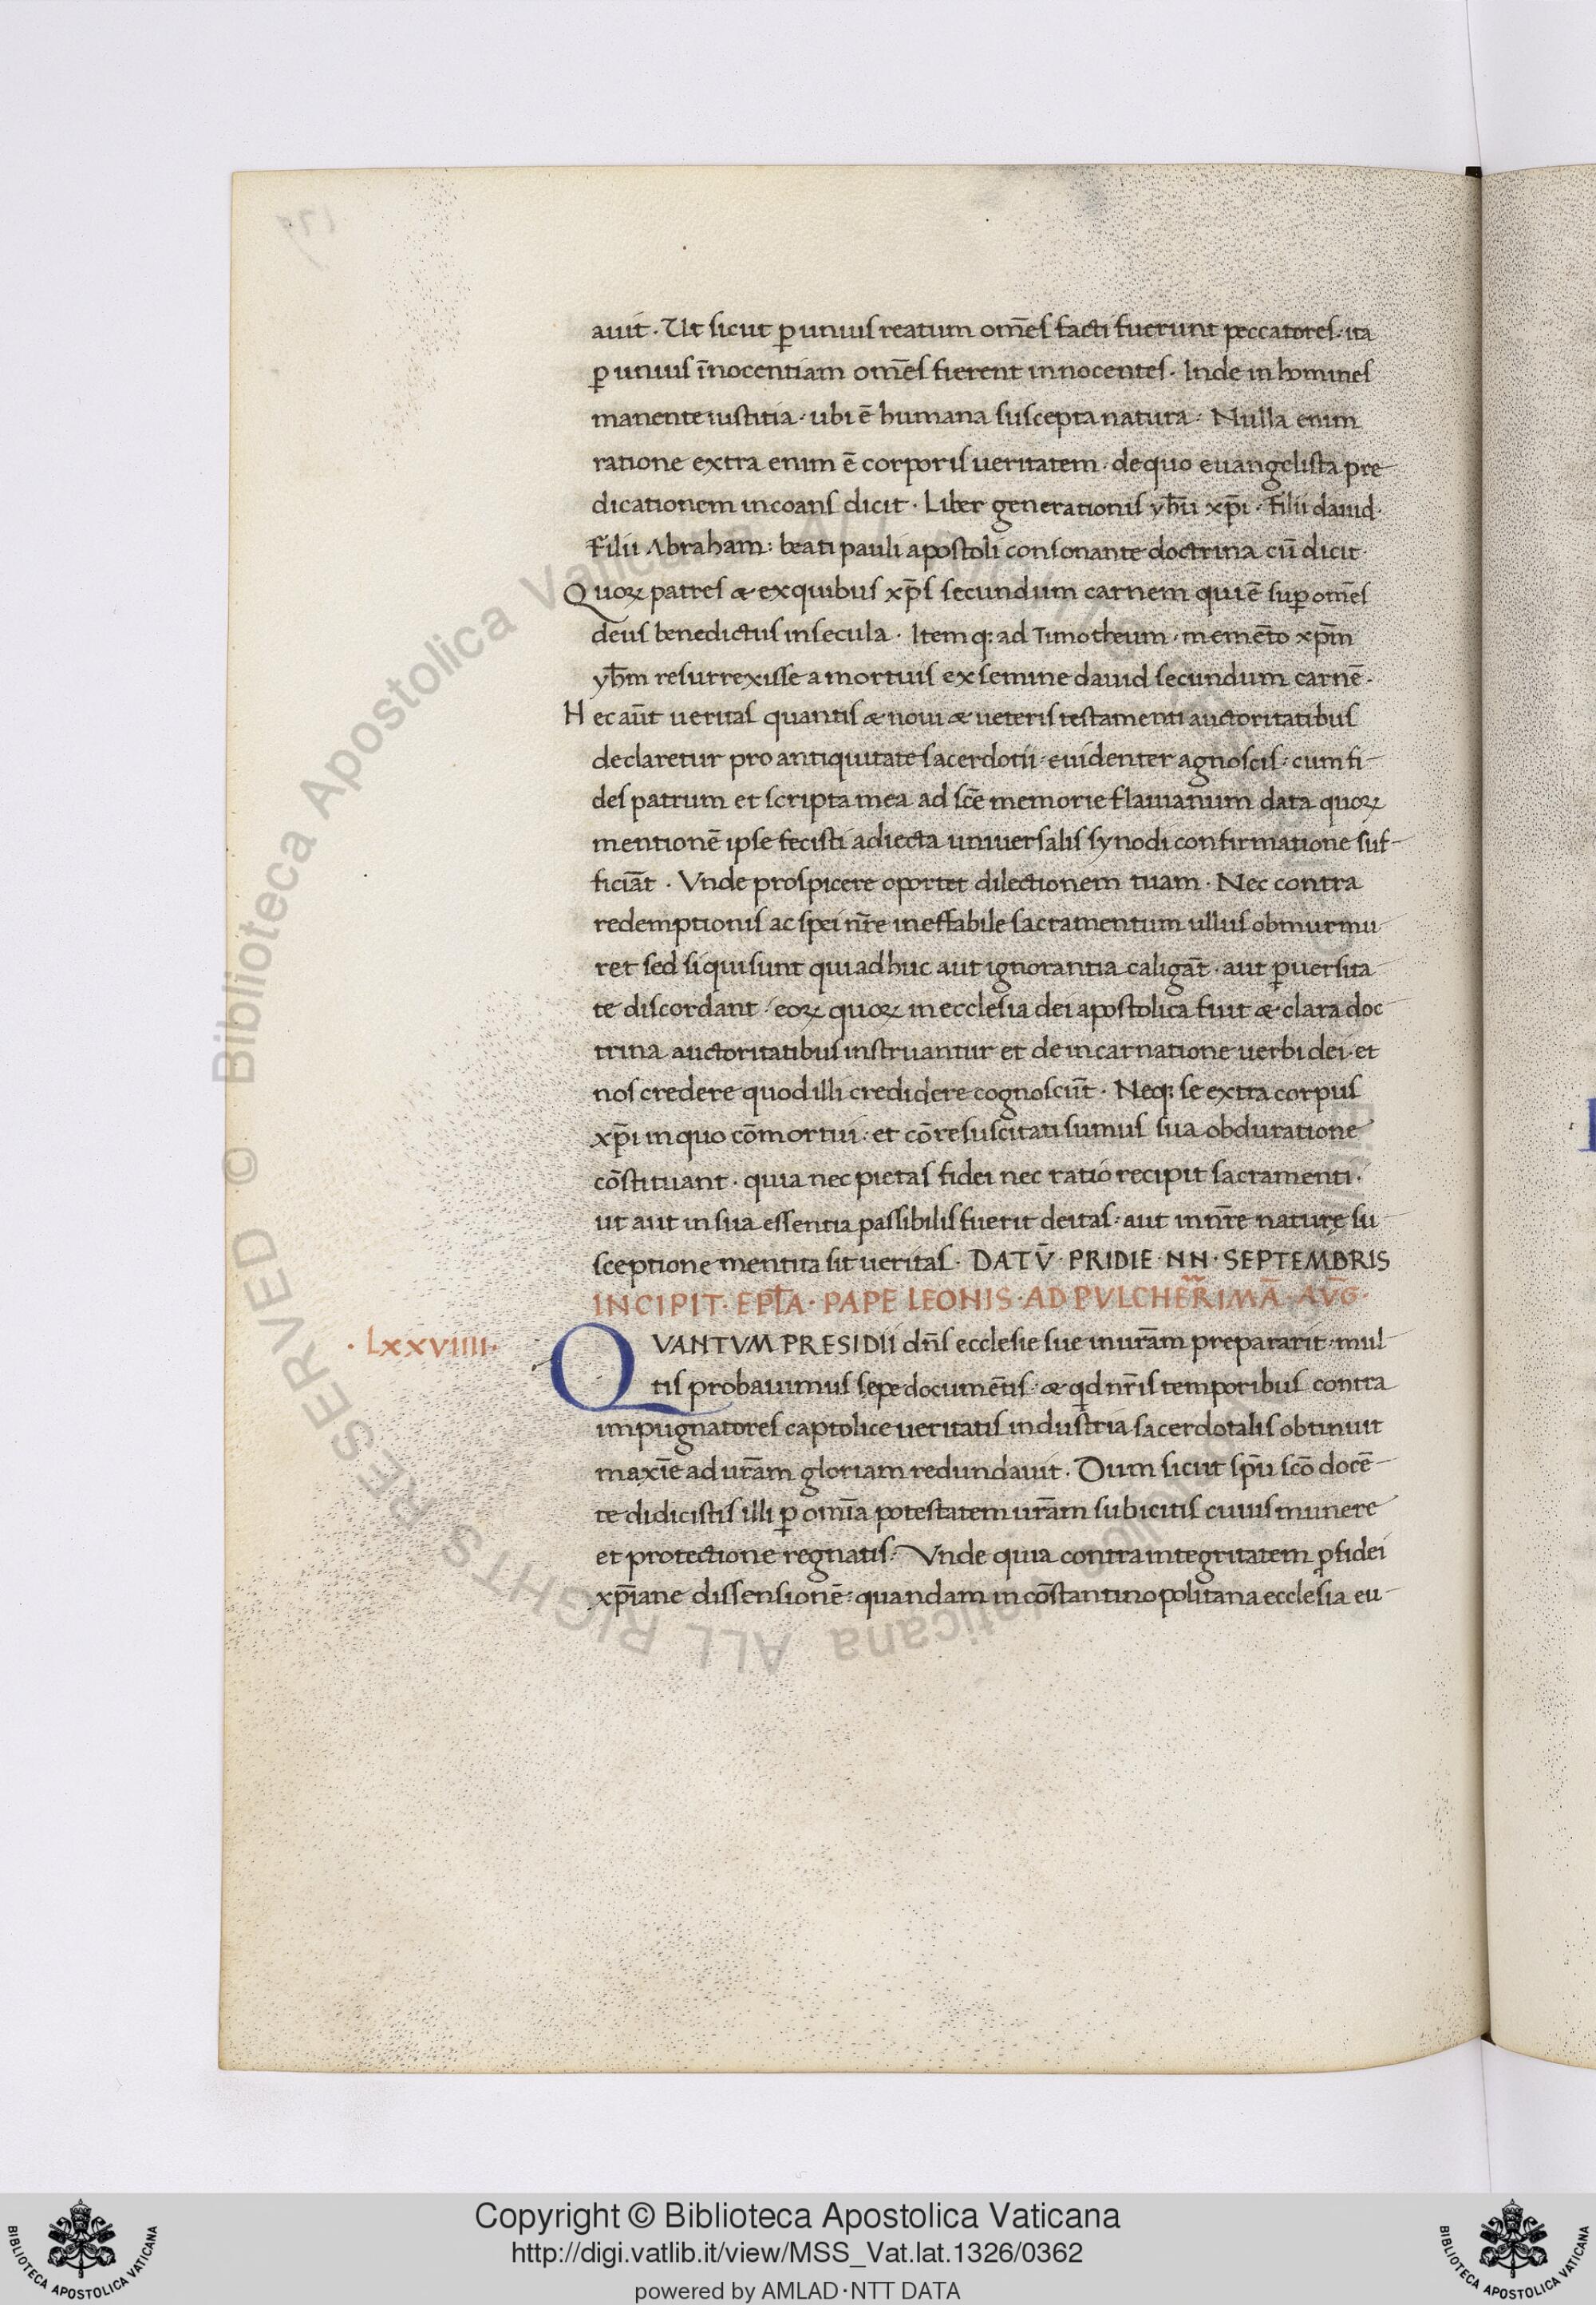 auit · Ut sicut ꝑ unius reatum om̄es facti fuerunt peccatores · ita
ꝑ unius īnocentiam om̄es fierent innocentes · Inde in homines
manente iustitia · ubi ē humana suscepta natura · Nulla enim
ratione extra enim ē corporis ueritatem · de quo euangelista pre
dicationem incoans dicit · Liber generationis yhū xp̄i · filii dauid ·
filii Abraham : beati pauli apostoli consonante doctrina cū dicit ·
Quoꝝ patres & ex quibus xp̄s secundum carnem qui ē suꝑ om̄es
deus benedictus in secula · Itemq; ad Timotheum · memēto xp̄m
yhm̄ resurrexisse a mortuis ex semine dauid secundum carnē ·
Hec aūt ueritas quantis & noui & ueteris testamenti auctoritatibus
declaretur pro antiquitate sacerdotii · euidenter agnoscis · cum fi
des patrum et scripta mea ad scē memorie flauianum data quoꝝ
mentionē ipse fecisti adiecta uniuersalis synodi confirmatione suf
ficiāt · Vnde prospicere oportet dilectionem tuam · Nec contra
redemptionis ac spei nr̄e ineffabile sacramentum ullus obmurmu
ret sed si qui sunt qui adhuc aut ignorantia caligāt · aut ꝑuersita
te discordant · eoꝝ quoꝝ in ecclesia dei apostolica fuit & clara doc
trina auctoritatibus instruantur et de incarnatione uerbi dei · et
nos credere quod illi credidere cognoscūt · Neq; se extra corpus
xp̄i in quo cōmortui : et cōresuscitati sumus sua obduratione
cōstituant · quia nec pietas fidei nec ratio recipit sacramenti ·
ut aut in sua essentia passibilis fuerit deitas · aut in nr̄e naturę su
sceptione mentita sit ueritas · DATŪ · PRIDIE · NN · SEPTEMBRIS
INCIPIT · EPL̄A · PAPE LEONIS · AD PVLCHER̄RIMĀ · AV̄G ·
· LXXVIIII ·
QVANTVM PRESIDII dn̄s ecclesie sue in urām prepararit · mul
tis probauimus sępe documētis · & qd nr̄is temporibus contra
impugnatores captolice ueritatis industria sacerdotalis obtinuit
maxīe ad urām gloriam redundauit · Dum sicut spū scō docē
te didicistis illi ꝑ omīa potestatem urām subicitis cuius munere
et protectione regnatis · Vnde quia contra integritatem ꝓ fidei
xp̄iane dissensionē : quandam in cōstantinopolitana ecclesia eu
© Biblioteca Apostolica Vaticana ALL RIGHTS RESERVED
Copyright © Biblioteca Apostolica Vaticana
http://digi.vatlib.it/view/MSS_Vat.lat.1326/0362
powered by AMLAD·NTT DATA
BIBLIOTECA APOSTOLICA VATICANA
BIBLIOTECA APOSTOLICA VATICANA